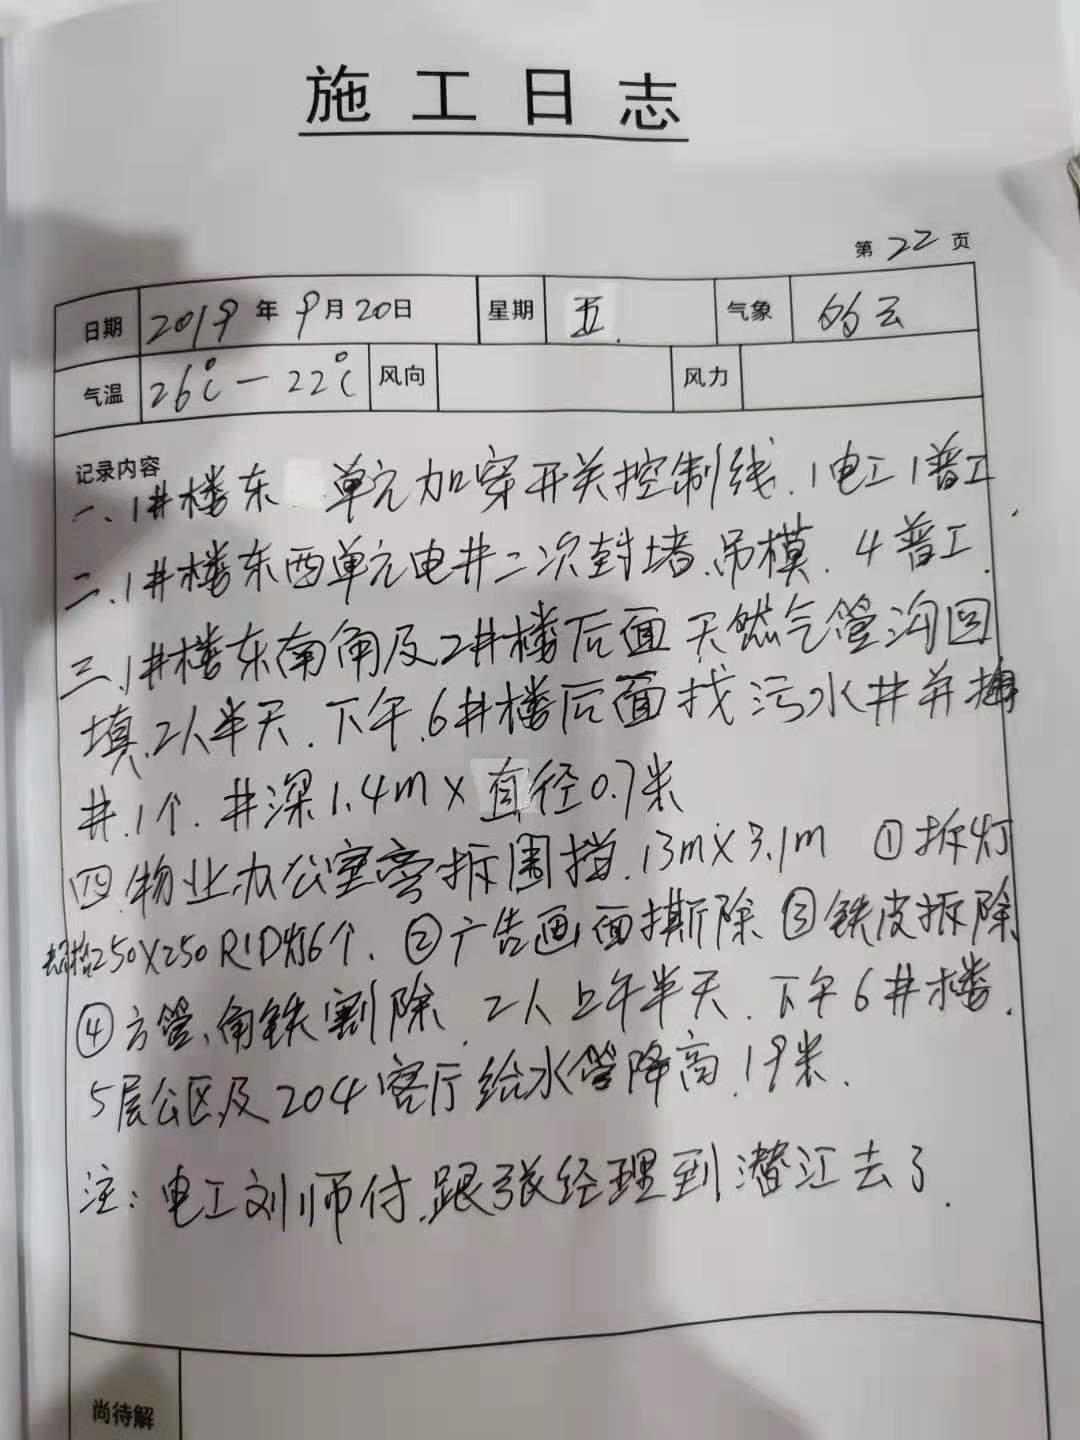 施工日志
第 22 页
日期 2019 年 9月20日 星期 五. 气象 多云
气温 26℃—22℃ 风向 风力
记录内容
一、1井楼东 单元加穿开关控制线.1电工1普工.
二、1井楼东西单元电井二次封堵、吊模.4普工.
三、1井楼东南角及2井楼后面天然气管沟回
填.2人半天.下午.6井楼后面找污水井并
井.1个.井深1.4m×直径0.7米
四.物业办公室旁拆围挡.13m×3.1m ①拆灯
250×250 灯6个. ②广告画面撕除 ③铁皮拆除
④方管、角铁割除.2人上午半天.下午6井楼.
5层公区及204客厅给水管降高.19米.
注：电工刘师付.跟张经理到潜江去了.
尚待解